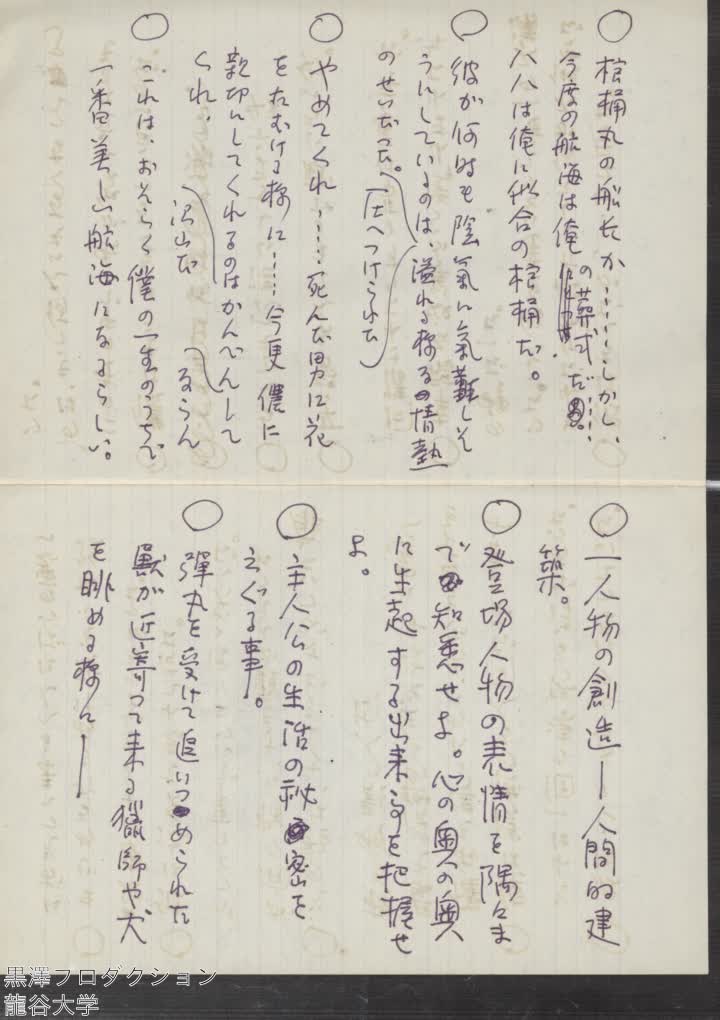 ○棺桶丸の船長か……しかし、
今度の航海は俺の葬式だ……
八八は俺に似合の棺桶だ。
○彼が何時も陰氣に氣難しそ
うにしているのは、溢れる様な情熱
のせいだった。
圧へつけられた
○やめてくれ……死んだ男に花
をたむける様に……今更僕に
親切にしてくれるのはかんべんして
くれ、
沢山だ
○これは、おそらく僕の一生のうちで
一番美しい航海になるらしい。
○一人物の創造―人間的建
築。
○登場人物の表情を隅々ま
で知悉せよ。心の奥の奥
に生起する出来事を把握せ
よ。
○主人公の生活の秘密を
えぐる事。
○彈丸を受けて追いつめられた
獸が近寄つて来る獵師や犬
を眺める様に―
黒澤プロダクション
龍谷大学